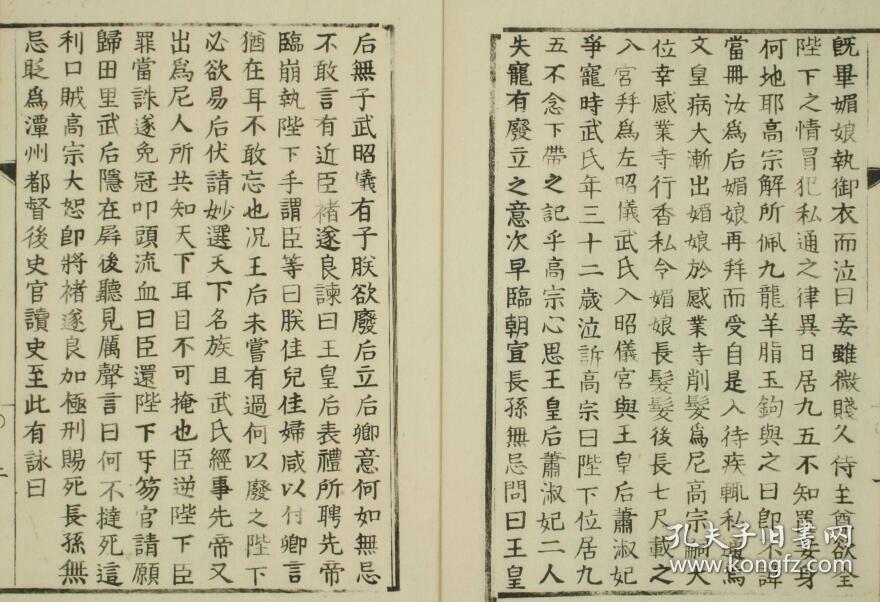 既畢媚娘執御衣而泣曰妾雖微賤久侍至尊欲全
陛下之情冒犯私通之律異日居九五不知置妾身
何地耶高宗解所佩九龍羊脂玉鉤與之曰即不諱
當冊汝爲后媚娘再拜而受自是入侍疾輒私遇焉
文皇病大漸出媚娘於感業寺削髮爲尼高宗嗣大
位幸感業寺行香私令媚娘長髮髮後長七尺載之
入宮拜爲左昭儀武氏入昭儀宮與王皇后蕭淑妃
爭寵時武氏年三十二歲泣訴高宗曰陛下位居九
五不念下帶之記乎高宗心思王皇后蕭淑妃二人
失寵有廢立之意次早臨朝宣長孫無忌問曰王皇
后無子武昭儀有子朕欲廢后立后卿意何如無忌
不敢言有近臣褚遂良諫曰王皇后表禮所聘先帝
臨崩執陛下手謂臣等曰朕佳兒佳婦咸以付卿言
猶在耳不敢忘也况王后未嘗有過何以廢之陛下
必欲易后伏請妙選天下名族且武氏經事先帝又
出爲尼人所共知天下耳目不可掩也臣逆陛下臣
罪當誅遂免冠叩頭流血曰臣還陛下牙笏官請願
歸田里武后隱在屛後聽見厲聲言曰何不撻死這
利口賊高宗大恕卽將褚遂良加極刑賜死長孫無
忌貶爲潭州都督後史官讀史至此有詠曰
孔夫子旧书网
kongfz.com